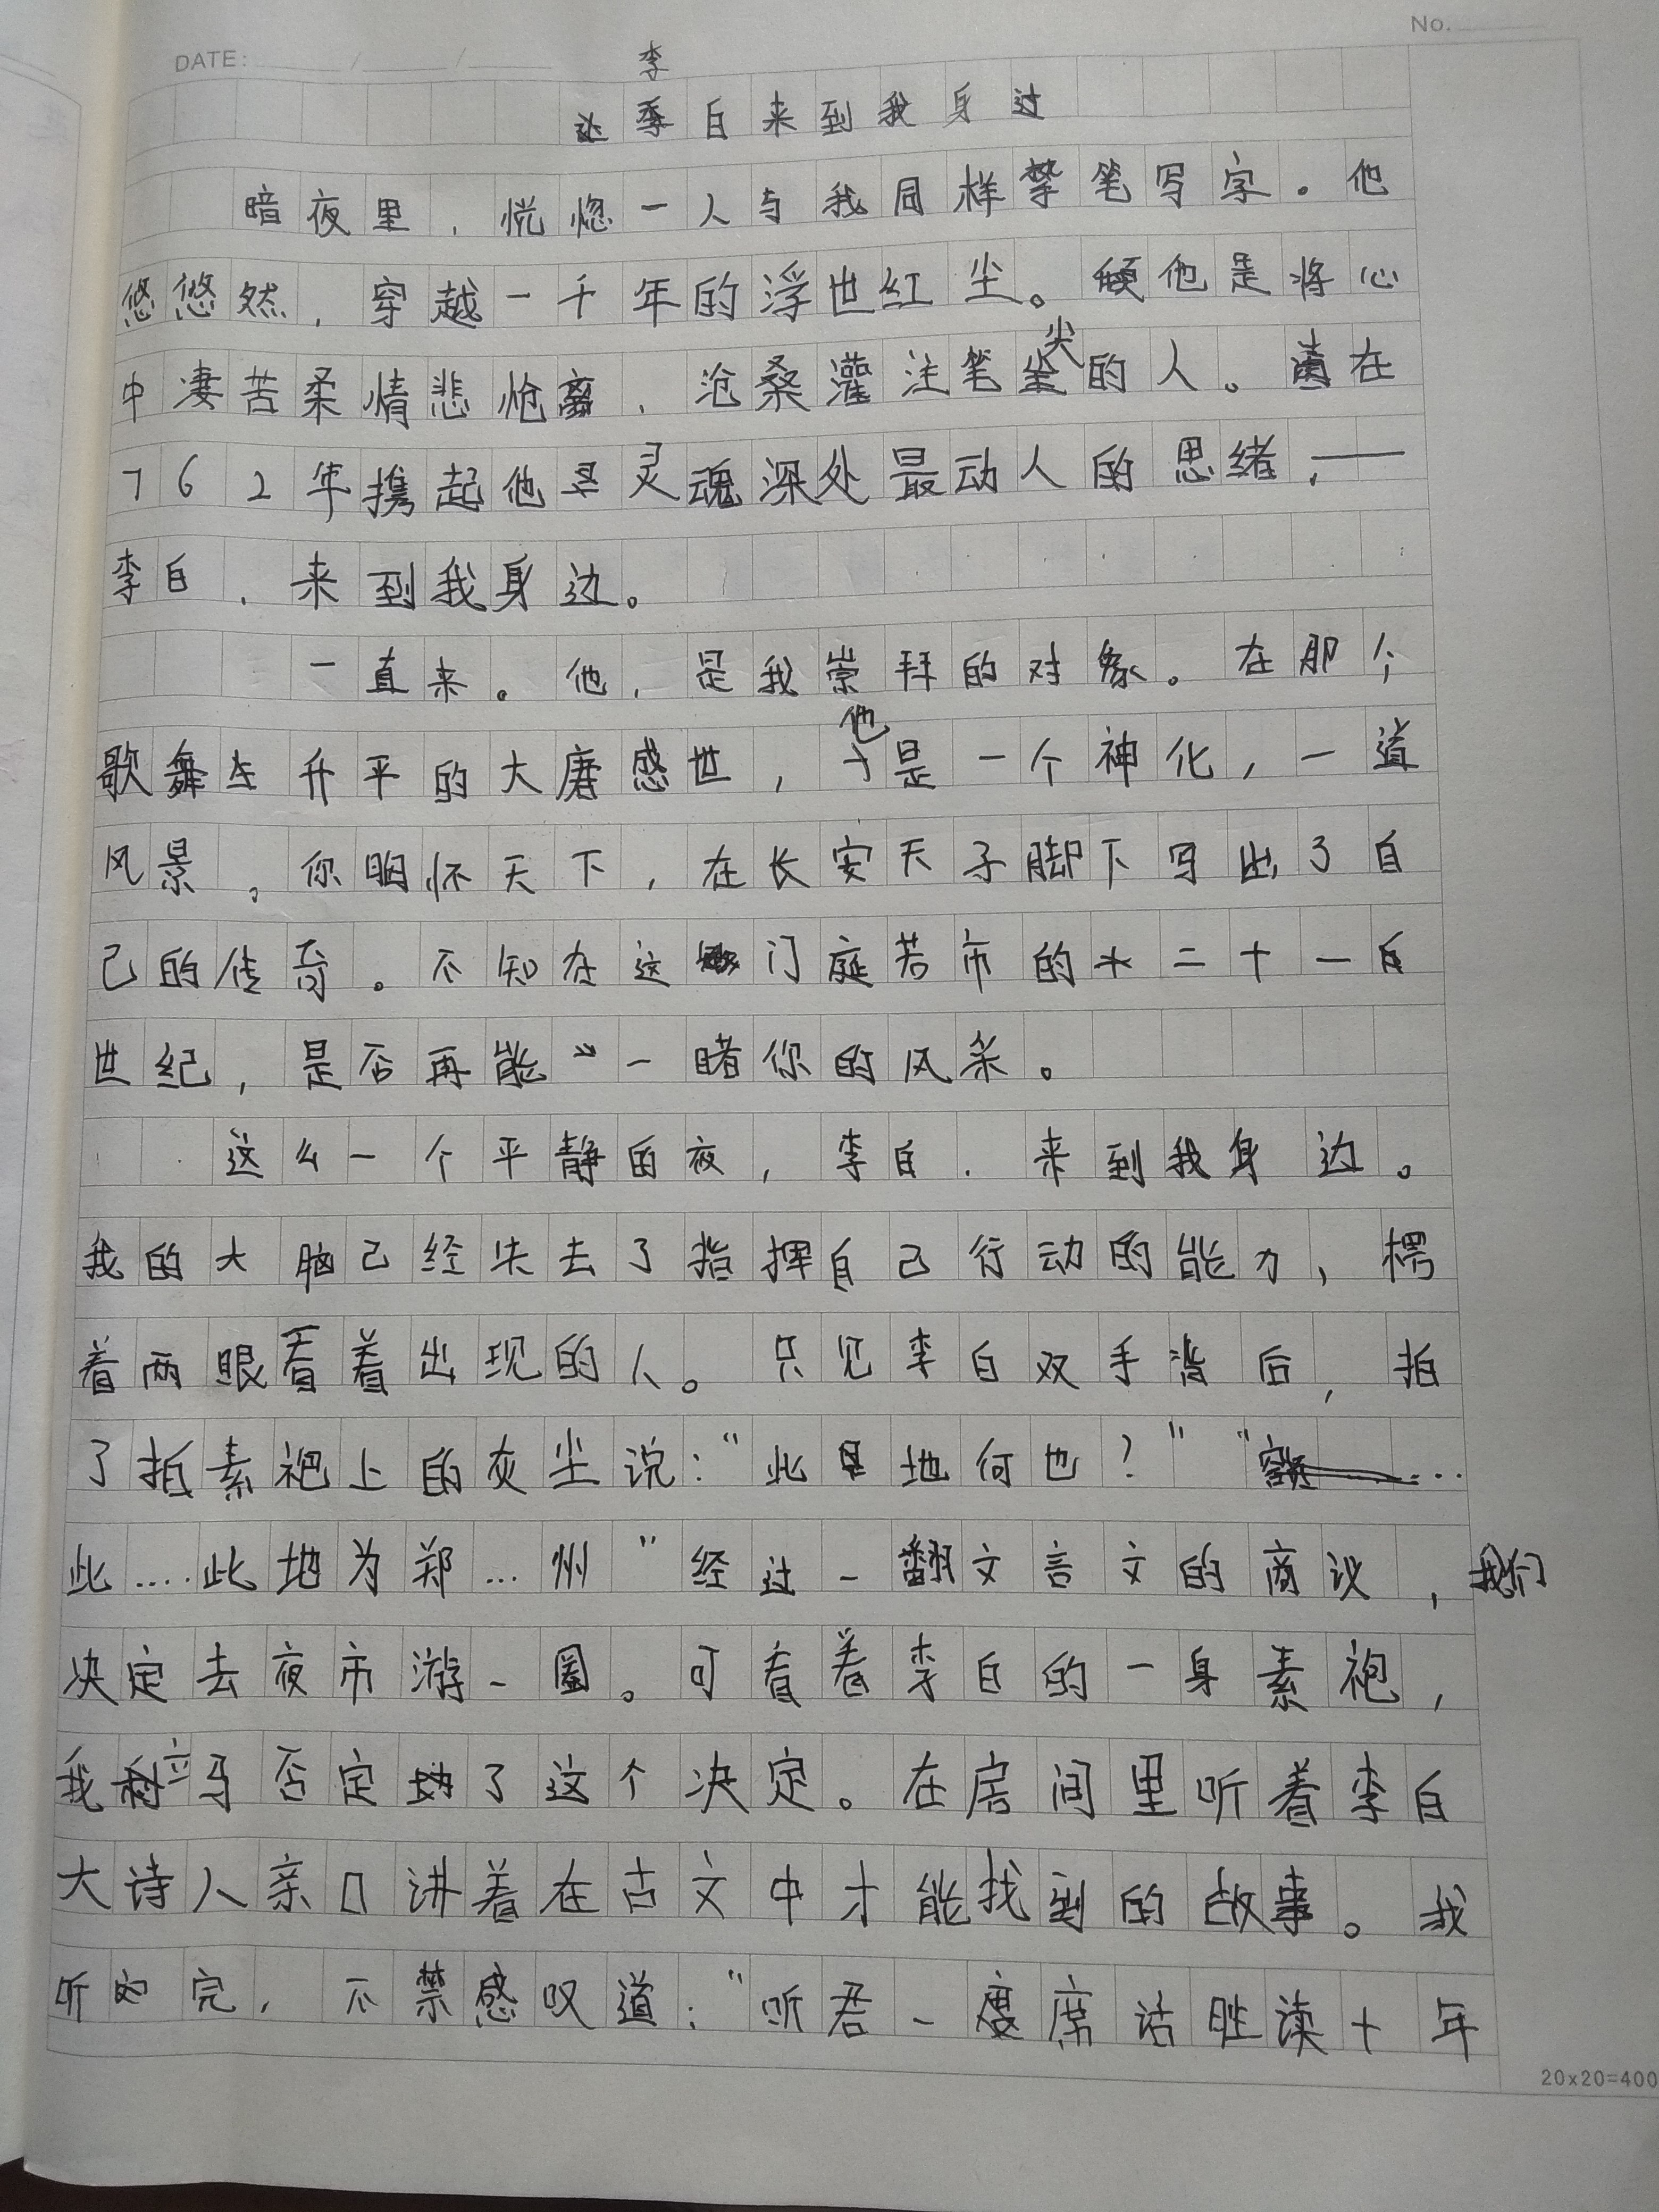 No.
DATE: / /
李
李白来到我身边
暗夜里，恍惚一人与我同样擎笔写字。他
悠悠然，穿越一千年的浮世红尘。他是将心
中凄苦柔情悲怆离，沧桑灌注笔尖的人。在
762年携起他灵魂深处最动人的思绪，——
李白，来到我身边。
一直来。他，是我崇拜的对象。在那个
歌舞升平的大唐盛世，他是一个神化，一道
风景。你胸怀天下，在长安天子脚下写出了自
己的传奇。不知在这门庭若市的二十一
世纪，是否再能一睹你的风采。
这么一个平静的夜，李白．来到我身边。
我的大脑已经失去了指挥自己行动的能力，楞
着两眼看着出现的人。只见李白双手背后，拍
了拍素袍上的灰尘说：“此地何也？”“…
此……此地为郑…州”经过一翻文言文的商议，我们
决定去夜市游一圈。可看着李白的一身素袍，
我立马否定了这个决定。在房间里听着李白
大诗人亲口讲着在古文中才能找到的故事。我
听完，不禁感叹道：“听君一席话胜读十年
20x20=400